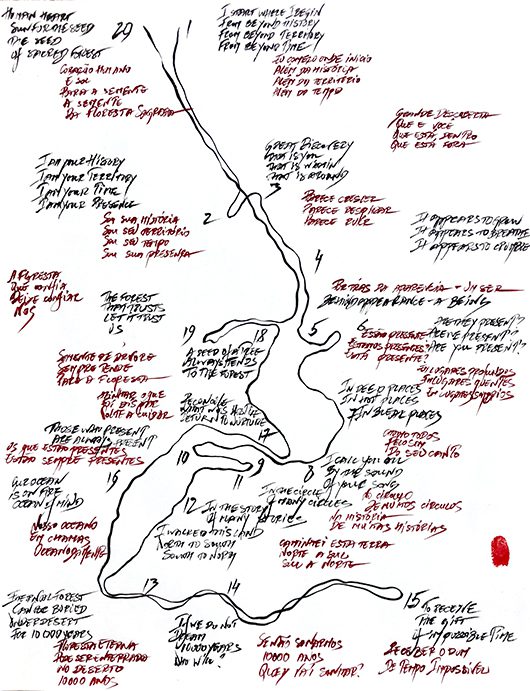 HUMAN HEART
SUN FOR THE SEED
THE SEED
of SACRED FOREST
20
CORAÇÃO HUMANO
E SOL
PARA A SEMENTE
A SEMENTE
DA FLORESTA SAGRADA
1
I START WHERE I BEGIN
FROM BEYOND HISTORY
FROM BEYOND TERRITORY
FROM BEYOND TIME
EU COMEÇO ONDE INICIO
ALÉM DA HISTÓRIA
ALÉM DO TERRITÓRIO
ALÉM DO TEMPO
I AM YOUR HISTORY
I AM YOUR TERRITORY
I AM YOUR TIME
I AM YOUR PRESENCE
2
SOU SUA HISTÓRIA
SOU SEU TERRITÓRIO
SOU SEU TEMPO
SOU SUA PRESENÇA
GREAT DISCOVERY
THAT IS YOU
THAT IS WITHIN
THAT IS AROUND
3
GRANDE DESCOBERTA
QUE É VOCE
QUE ESTÁ DENTRO
QUE ESTÁ FORA
PARECE CRESCER
PARECE RESPIRAR
PARECE RUIR
4
IT APPEARS TO GROW
IT APPEARS TO BREATHE
IT APPEARS TO CRUMBLE
POR TRÁS DA APARENCIA - UM SER
BEHIND APPEARANCE - A BEING
5
6
ARE THEY PRESENT?
ARE WE PRESENT?
ARE YOU PRESENT?
ESTÃO PRESENTES?
ESTAMOS PRESENTES?
ESTÁ PRESENTE?
IN DEEP PLACES
IN HOT PLACES
IN BLEAK PLACES
EM LUGARES PROFUNDOS
EM LUGARES QUENTES
EM LUGARES SOMBRIOS
8
I CALL YOU ALL
BY THE SOUND
OF YOUR SONG
CHAMO TODOS
PELO SOM
DO SEU CANTO
9
10
11
IN THE CIRCLE
OF MANY CIRCLES
IN THE STORY
OF MANY STORIES
NO CÍRCULO
DE MUITOS CÍRCULOS
NA HISTÓRIA
DE MUITAS HISTÓRIAS
12
I WALKED THIS LAND
NORTH TO SOUTH
SOUTH TO NORTH
CAMINHEI ESTA TERRA
NORTE A SUL
SUL A NORTE
13
THE ETERNAL FOREST
CAN BE BURIED
UNDER DESERT
FOR 10 000 YEARS
FLORESTA ETERNA
PODE SER ENTERRADA
NO DESERTO
10000 ANOS
14
IF WE DO NOT
DREAM
10000 YEARS
WHO WILL?
SE NÃO SONHARMOS
10000 ANOS
QUEM VAI SONHAR?
15
TO RECEIVE
THE GIFT
of IMPOSSIBLE TIME
RECEBER O DOM
DE TEMPO IMPOSSÍVEL
16
OUR OCEAN
IS ON FIRE
OCEAN of MIND
NOSSO OCEANO
EM CHAMAS
OCEANO DA MENTE
THOSE WHO PRESENT
ARE ALWAYS PRESENT
OS QUE ESTÃO PRESENTES
ESTÃO SEMPRE PRESENTES
17
RECONCILE
WHAT WAS HOSTILE
RETURN TO NURTURE
ALINHAR O QUE
FOI DISPAR
VOLTE A CUIDAR
18
A SEED OF A TREE
ALWAYS TENDS
TO THE FOREST
SEMENTE DE ÁRVORE
SEMPRE TENDE
PARA A FLORESTA
19
THE FOREST
THAT TRUSTS
LET IT TRUST
US
A FLORESTA
QUE CONFIA
DEIXE CONFIAR
NOS